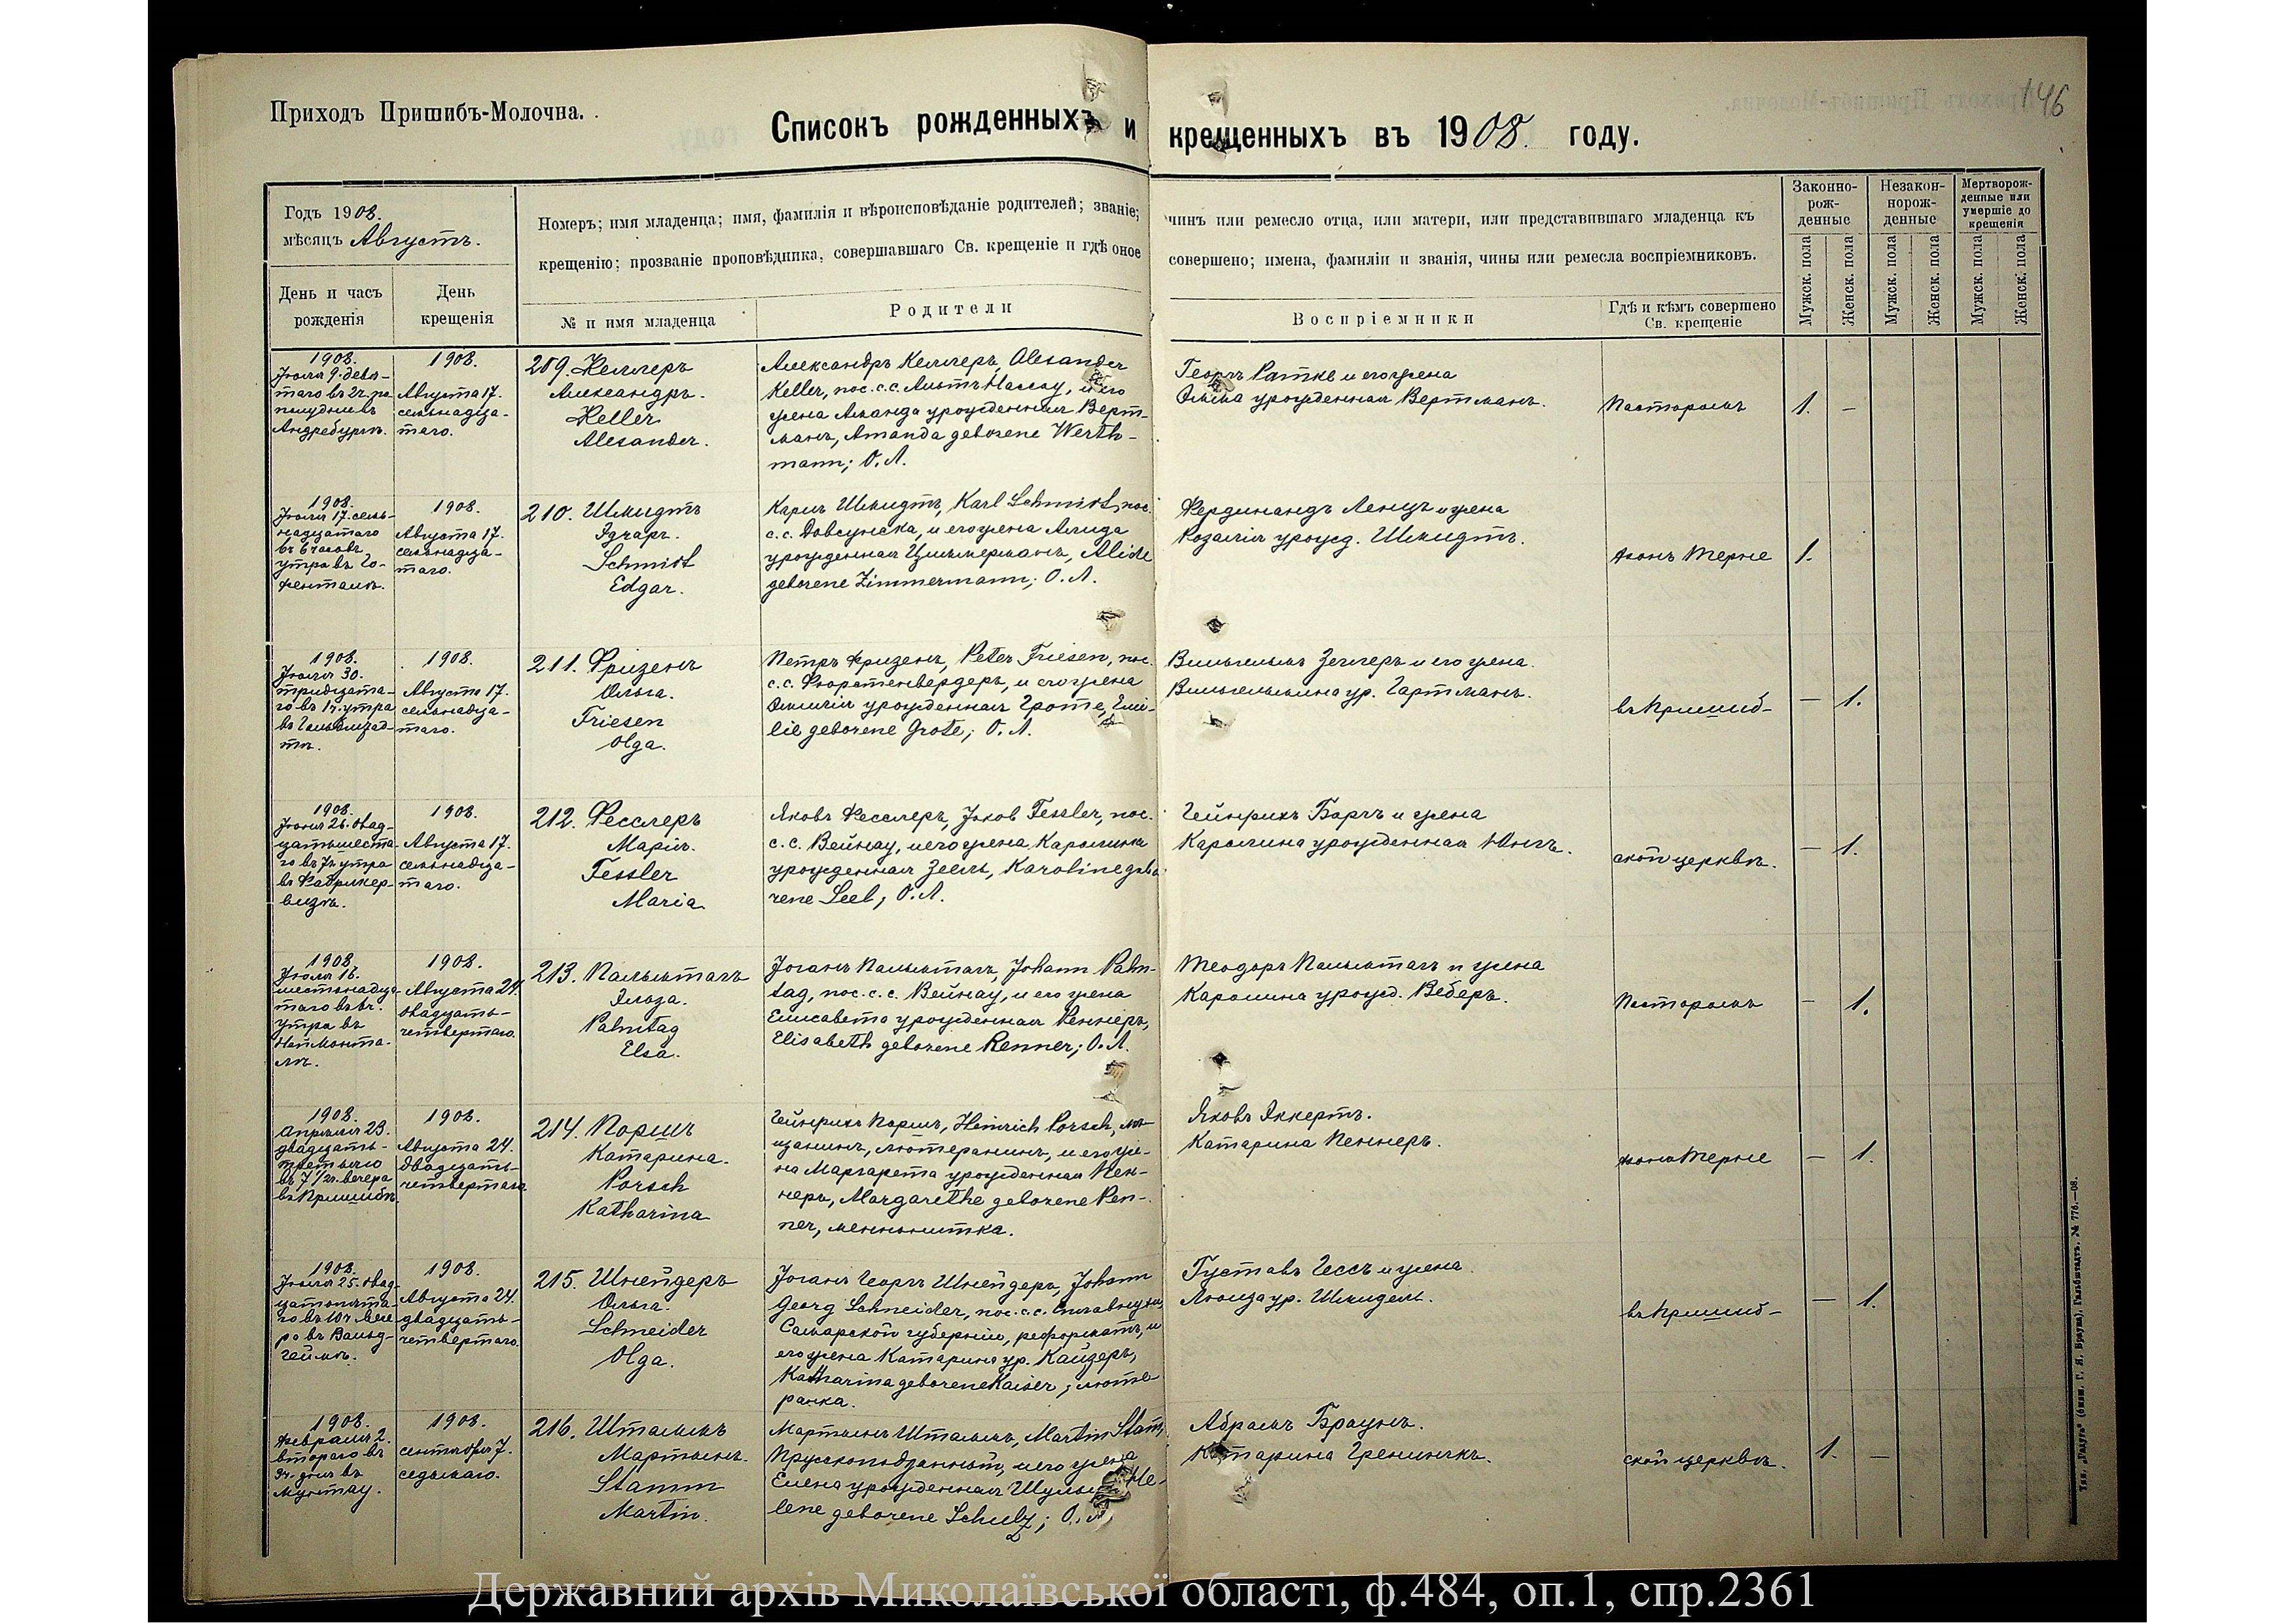 Приходъ Пришибъ-Молочна.
146
Списокъ рожденныхъ и крещенныхъ въ 1908 году.
Годъ 1908.
мѣсяцъ Августъ.
Номеръ; имя младенца; имя, фамилія и вѣроисповѣданіе родителей; званіе; чинъ или ремесло отца, или матери, или представившаго младенца къ
крещенію; прозваніе проповѣдника, совершавшаго Св. крещеніе и гдѣ оное совершено; имена, фамиліи и званія, чины или ремесла воспріемниковъ.
Законно-
рож-
денные
Незакон-
норож-
денные
Мертворож-
денные или
умершіе до
крещенія
День и часъ
рожденія
День
крещенія
№ и имя младенца
Родители
Воспріемники
Гдѣ и кѣмъ совершено
Св. крещеніе
Мужск. пола
Женск. пола
Мужск. пола
Женск. пола
Мужск. пола
Женск. пола
1908.
Іюля 9. девя-
таго въ 2ч. по
полудни въ
Андребургѣ.
1908.
Августа 17.
семьнадца-
таго.
209. Келлеръ
Александръ.
Keller
Alexander.
Александръ Келлеръ, Alexander
Keller, пос. с.с. Альтъ Нассау, и его
жена Аманда урожденная Верт-
манъ, Amanda geborene Werth-
mann; О. Л.
Георгъ Ратке и его жена
урожденная Вертманъ.
Пасторомъ
1. –
1908.
Іюля 17. семь-
надцатаго
въ 6 часовъ
утра въ Го-
фенталѣ.
1908.
Августа 17.
семьнадца-
таго.
210. Шмидтъ
Эдгаръ.
Schmidt
Edgar.
Карлъ Шмидтъ, Karl Schmidt, пос.
с.с. Довсунака, и его жена Алида
урожденная Циммерманъ, Alide
geborene Zimmermann; О. Л.
Фердинандъ Ленцъ и жена
Розалія урожд. Шмидтъ.
фонъ Терне
1.
1908.
Іюля 30.
тридцата-
го въ 1ч. утра
въ Гальбштад-
тѣ.
1908.
Августа 17.
семьнадца-
таго.
211. Фризенъ
Ольга.
Friesen
Olga.
Петръ Фризенъ, Peter Friesen, пос.
с.с. Фюрстенвердеръ, и его жена
Эмилія урожденная Гроте, Emi-
lie geborene Grote; О. Л.
Вильгельмъ Зеглеръ и его жена
Вильгельмина ур. Гартманъ.
въ Пришиб-
– 1.
1908.
26. двад-
цатьшеста-
го въ 7ч. утра
въ Фабрикер-
визѣ.
1908.
Августа 17.
семьнадца-
таго.
212. Фесслеръ
Марія.
Fessler
Maria
Яковъ Фесслеръ, Jakob Fessler, пос.
с.с. Вейнау, и его жена Каролина
урожденная Зееель, Karoline gebo-
rene Seel; О. Л.
Гейнрихъ Боргъ и жена
Каролина урожденная Юнгъ.
ской церквѣ.
– 1.
1908.
Іюля 16.
шестьнадца-
таго въ 6ч.
утра въ
НейМонта-
лѣ.
1908.
Августа 24.
двадцать-
четвертаго.
213. Пальмтагъ
Эльза.
Palmtag
Elsa.
Іоганъ Пальмтагъ, Johann Palm-
tag, пос. с.с. Вейнау, и его жена
Елисавета урожденная Реннеръ,
Elisabeth geborene Renner; О. Л.
Теодоръ Пальмтагъ и жена
Каролина урожд. Веберъ.
Пасторомъ
– 1.
1908.
Апрѣля 23.
двадцать-
третьяго
въ 7 1/2ч. вечера
въ Пришибѣ.
1908.
Августа 24.
двадцать-
четвертаго
214. Поршъ
Катарина.
Porsch
Katharina
Гейнрихъ Поршъ, Heinrich Porsch, мѣ-
щанинъ, лютеранинъ, и его же-
на Маргарета урожденная Пен-
неръ, Margarethe geborene Pen-
ner, меннонитка.
Яковъ Яккертъ.
Катарина Пеннеръ.
фонъ Терне
– 1.
1908.
Іюля 25. двад-
цатьпята-
го въ 10ч. вече-
ра въ Вальд-
геймѣ.
1908.
Августа 24.
двадцать-
четвертаго.
215. Шнейдеръ
Ольга.
Schneider
Olga.
Іоганъ Георгъ Шнейдеръ, Johann
Georg Schneider, пос. с.с.
Самарской губерніи, реформатъ, и
его жена Катарина ур. Кайзеръ,
Katharina geborene Kaiser, люте-
ранка.
Густавъ Гессъ и жена
Луиза ур. Шмидель.
въ Пришиб-
– 1.
1908.
Февраля 2.
второго въ
9ч. дня въ
Мунтау.
1908.
Сентября 7.
седьмаго.
216. Штаммъ
Мартынъ.
Stamm
Martin.
Мартынъ Штаммъ, Martin Stamm,
Прусскоподданный, и его жена
Елена урожденная Шульц, He-
lene geborene Schulz; О. Л.
Абрамъ Браунъ.
Катарина Гренингъ.
ской церквѣ.
1. –
Тип. „Радуга" (бывш. Г. Я. Брауна), Гальбштадтъ. № 776.—08.
Державний архів Миколаївської області, ф.484, оп.1, спр.2361